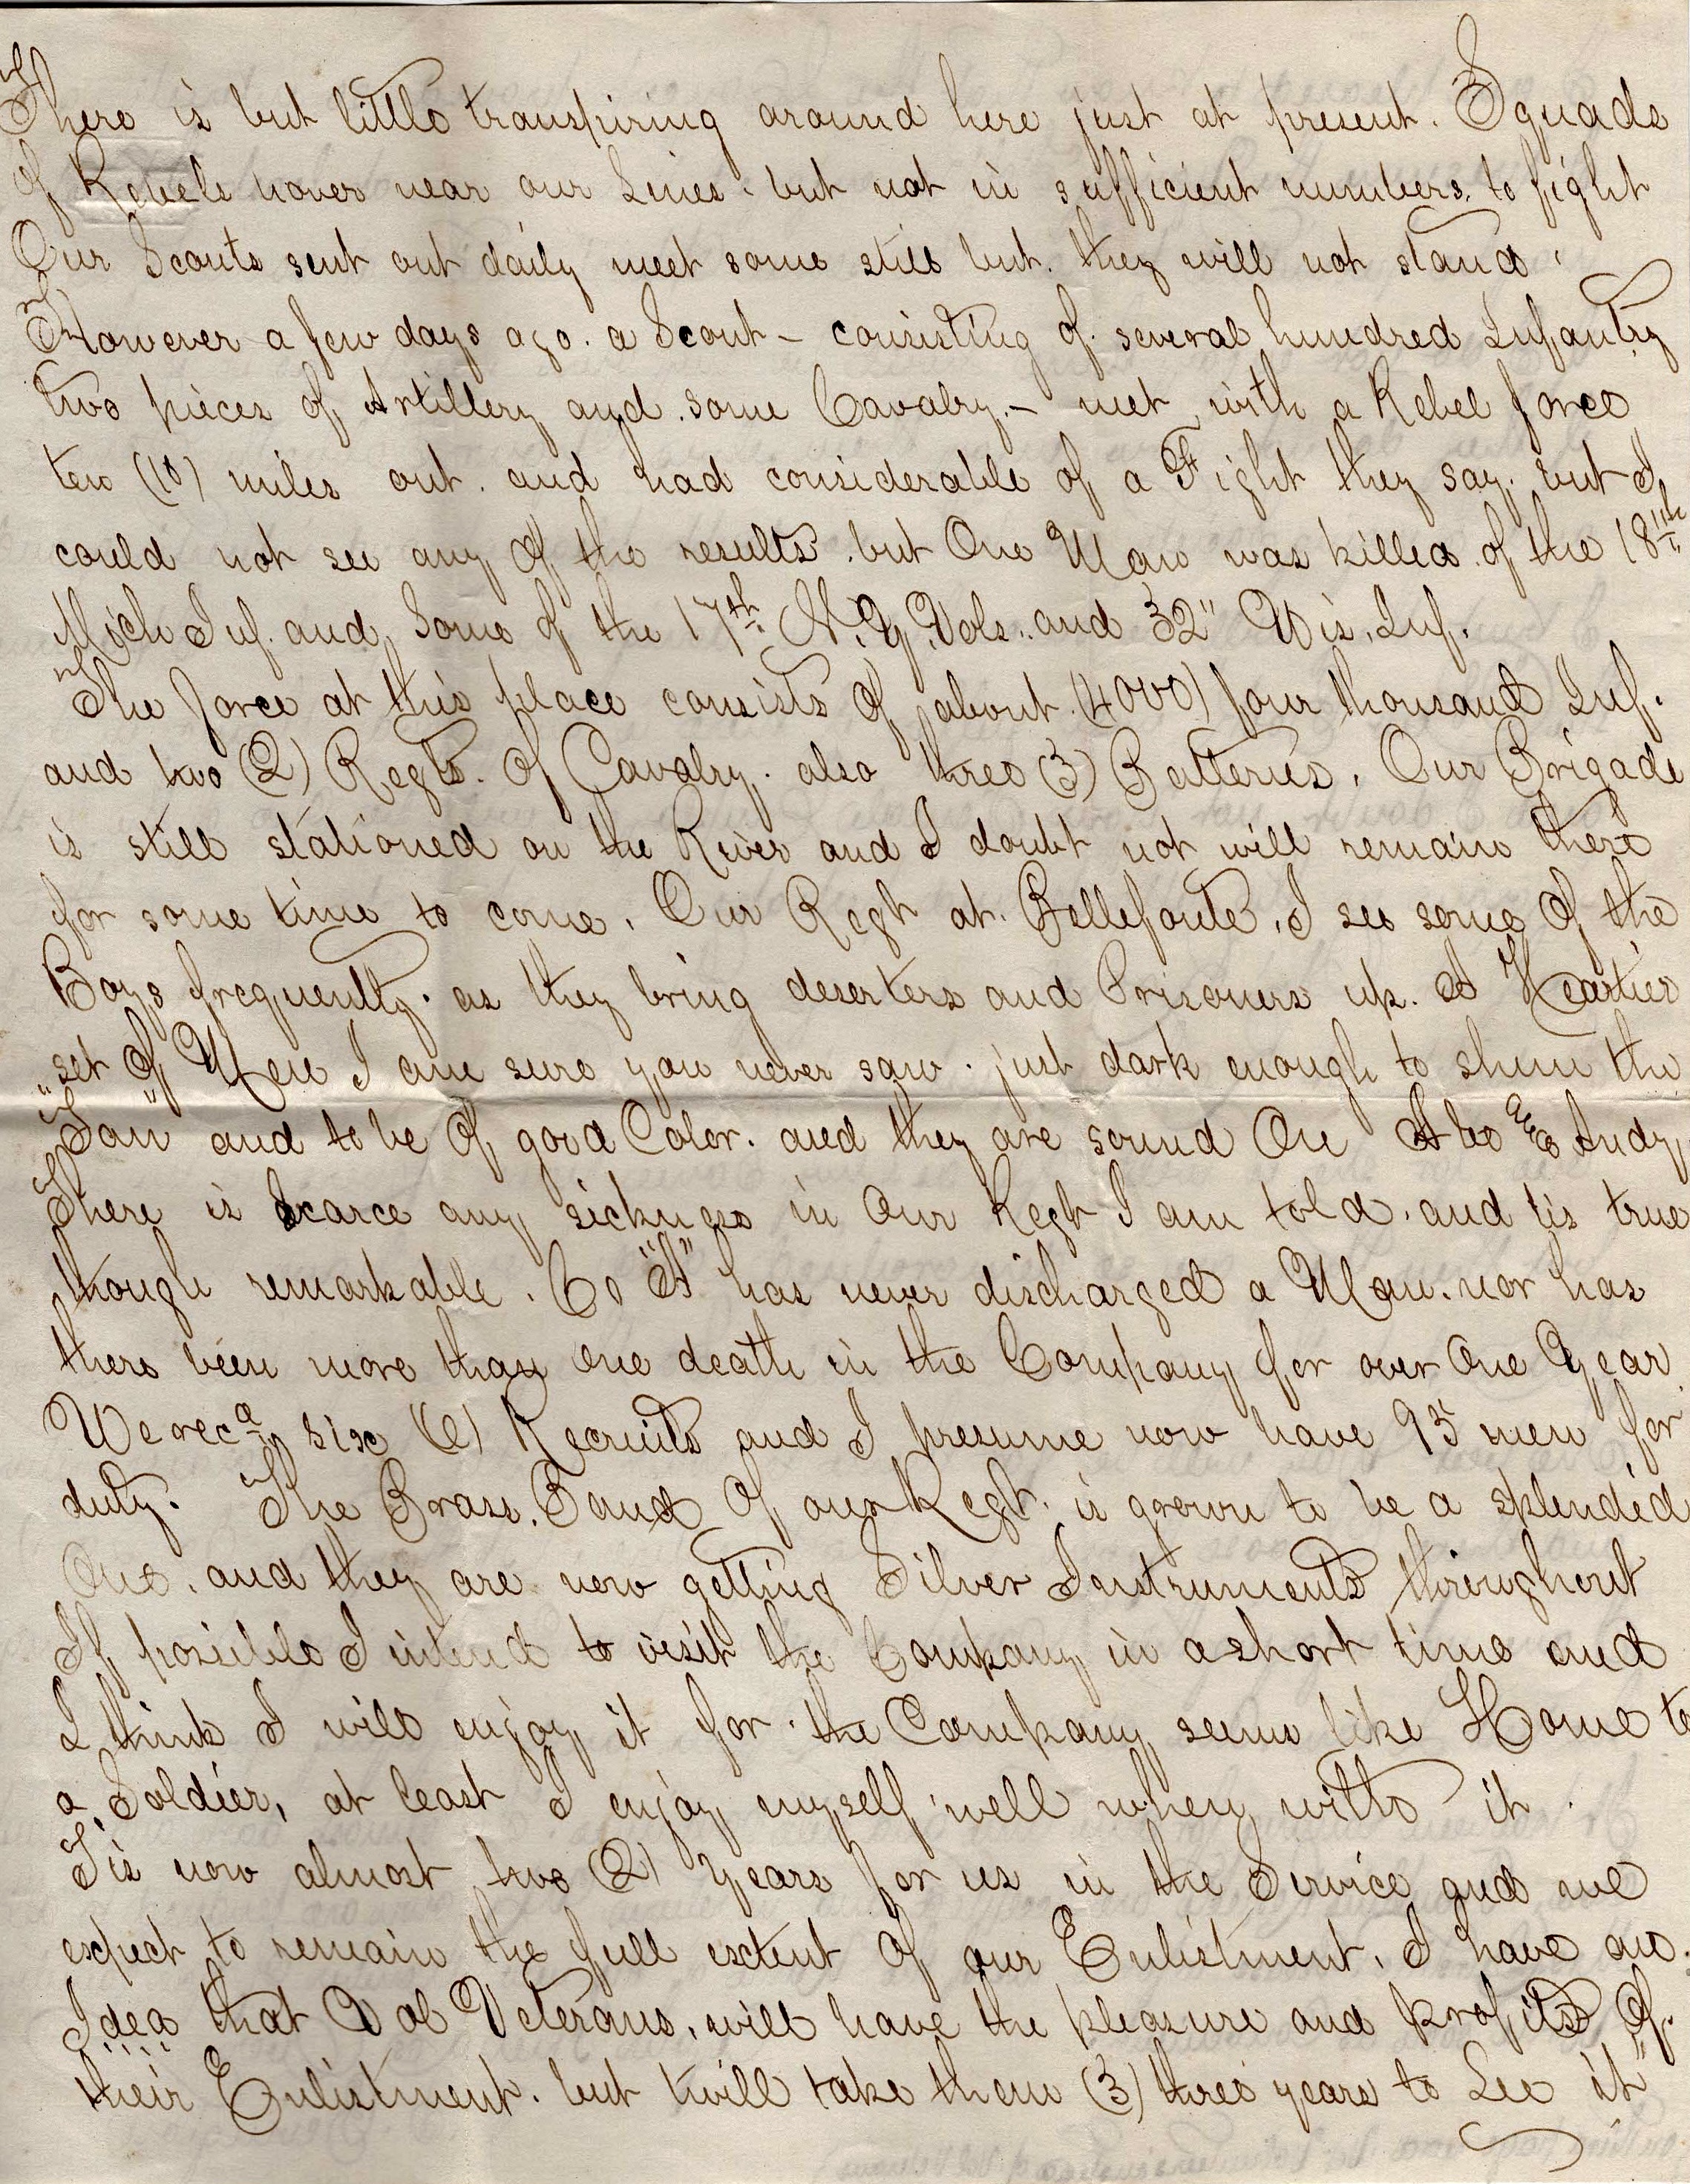 There is but little transpiring around here just at present. Squads
of Rebels hover near our Lines. but not in sufficient numbers. to fight
Our Scouts sent out daily meet some still but. they will not stand.
However a few days ago. a Scout – consisting of. several hundred Infantry
two pieces of Artillery and. some Cavalry. – met with a Rebel force
ten (10) miles out. and had considerable of a Fight they say. but I
could not see any of the results. but One Man was killed. of the 18th
Mich Inf. and Some of the 17th N.Y. Vols. and 32" Wis. Inf.
The force at this place consists of about. (4000) four thousand Inf.
and two (2) Regts. of Cavalry. also three (3) Batteries. Our Brigade
is still stationed on the River and I doubt not will remain there
for some time to come. Our Regt at. Bellefonte. I see some of the
Boys frequently. as they bring deserters and Prisoners up. A Heartier
set of Men I am sure you never saw. just dark enough to shun the
"Tan" and to be of good Color. and they are sound On Abe and Andy,
There is Scarce any sickness in Our Regt I am told. and tis true
though remarkable. Co "A" has never discharged a Man. nor has
there been more than one death in the Company for over One Year
We recd six (6) Recruits and I presume now have 95 men for
duty. The Brass. Band of our Regt. is grown to be a splendid
One. and they are now getting Silver Instruments throughout
If possible I intend to visit the Company in a short time and
I think I will enjoy it for. the Company seems like Home to
a Soldier, at least I enjoy myself well when with it.
Tis now almost two (2) years for us in the Service and we
expect to remain the full extent of our Enlistment. I have an.
Idea that Vol Veterans. will have the pleasure and profits of.
their Enlistment. but twill take them (3) three years to See it"